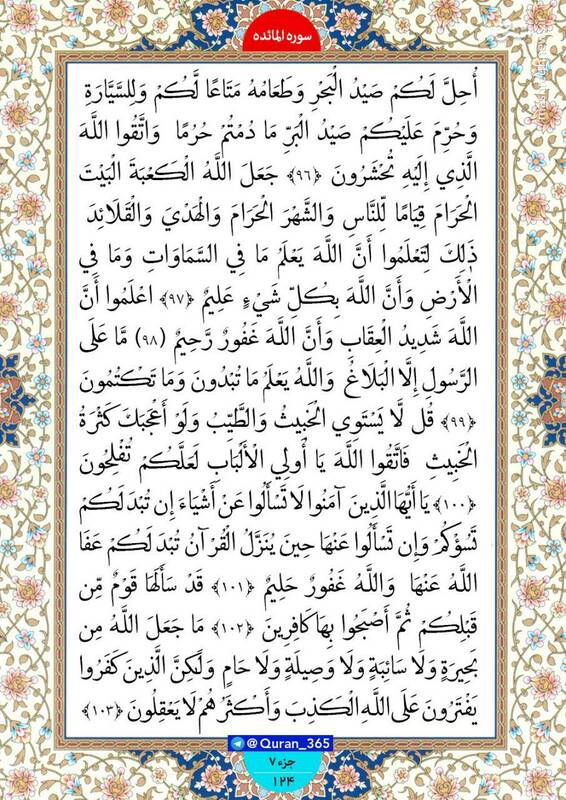 سوره المائده
أُحِلَّ لَكُمْ صَيْدُ الْبَحْرِ وَطَعَامُهُ مَتَاعًا لَّكُمْ وَلِلسَّيَّارَةِ
وَحُرِّمَ عَلَيْكُمْ صَيْدُ الْبَرِّ مَا دُمْتُمْ حُرُمًا وَاتَّقُوا اللَّهَ
الَّذِي إِلَيْهِ تُحْشَرُونَ ﴿۹۶﴾ جَعَلَ اللَّهُ الْكَعْبَةَ الْبَيْتَ
الْحَرَامَ قِيَامًا لِّلنَّاسِ وَالشَّهْرَ الْحَرَامَ وَالْهَدْيَ وَالْقَلَائِدَ
ذَٰلِكَ لِتَعْلَمُوا أَنَّ اللَّهَ يَعْلَمُ مَا فِي السَّمَاوَاتِ وَمَا فِي
الْأَرْضِ وَأَنَّ اللَّهَ بِكُلِّ شَيْءٍ عَلِيمٌ ﴿۹۷﴾ اعْلَمُوا أَنَّ
اللَّهَ شَدِيدُ الْعِقَابِ وَأَنَّ اللَّهَ غَفُورٌ رَّحِيمٌ (۹۸) مَّا عَلَى
الرَّسُولِ إِلَّا الْبَلَاغُ وَاللَّهُ يَعْلَمُ مَا تُبْدُونَ وَمَا تَكْتُمُونَ
﴿۹۹﴾ قُل لَّا يَسْتَوِي الْخَبِيثُ وَالطَّيِّبُ وَلَوْ أَعْجَبَكَ كَثْرَةُ
الْخَبِيثِ فَاتَّقُوا اللَّهَ يَا أُولِي الْأَلْبَابِ لَعَلَّكُمْ تُفْلِحُونَ
﴿۱۰۰﴾ يَا أَيُّهَا الَّذِينَ آمَنُوا لَا تَسْأَلُوا عَنْ أَشْيَاءَ إِن تُبْدَ لَكُمْ
تَسُؤْكُمْ وَإِن تَسْأَلُوا عَنْهَا حِينَ يُنَزَّلُ الْقُرْآنُ تُبْدَ لَكُمْ عَفَا
اللَّهُ عَنْهَا وَاللَّهُ غَفُورٌ حَلِيمٌ ﴿۱۰۱﴾ قَدْ سَأَلَهَا قَوْمٌ مِّن
قَبْلِكُمْ ثُمَّ أَصْبَحُوا بِهَا كَافِرِينَ ﴿۱۰۲﴾ مَا جَعَلَ اللَّهُ مِن
بَحِيرَةٍ وَلَا سَائِبَةٍ وَلَا وَصِيلَةٍ وَلَا حَامٍ وَلَٰكِنَّ الَّذِينَ كَفَرُوا
يَفْتَرُونَ عَلَى اللَّهِ الْكَذِبَ وَأَكْثَرُهُمْ لَا يَعْقِلُونَ ﴿۱۰۳﴾
@Quran_365
جزء ۷
۱۲۴